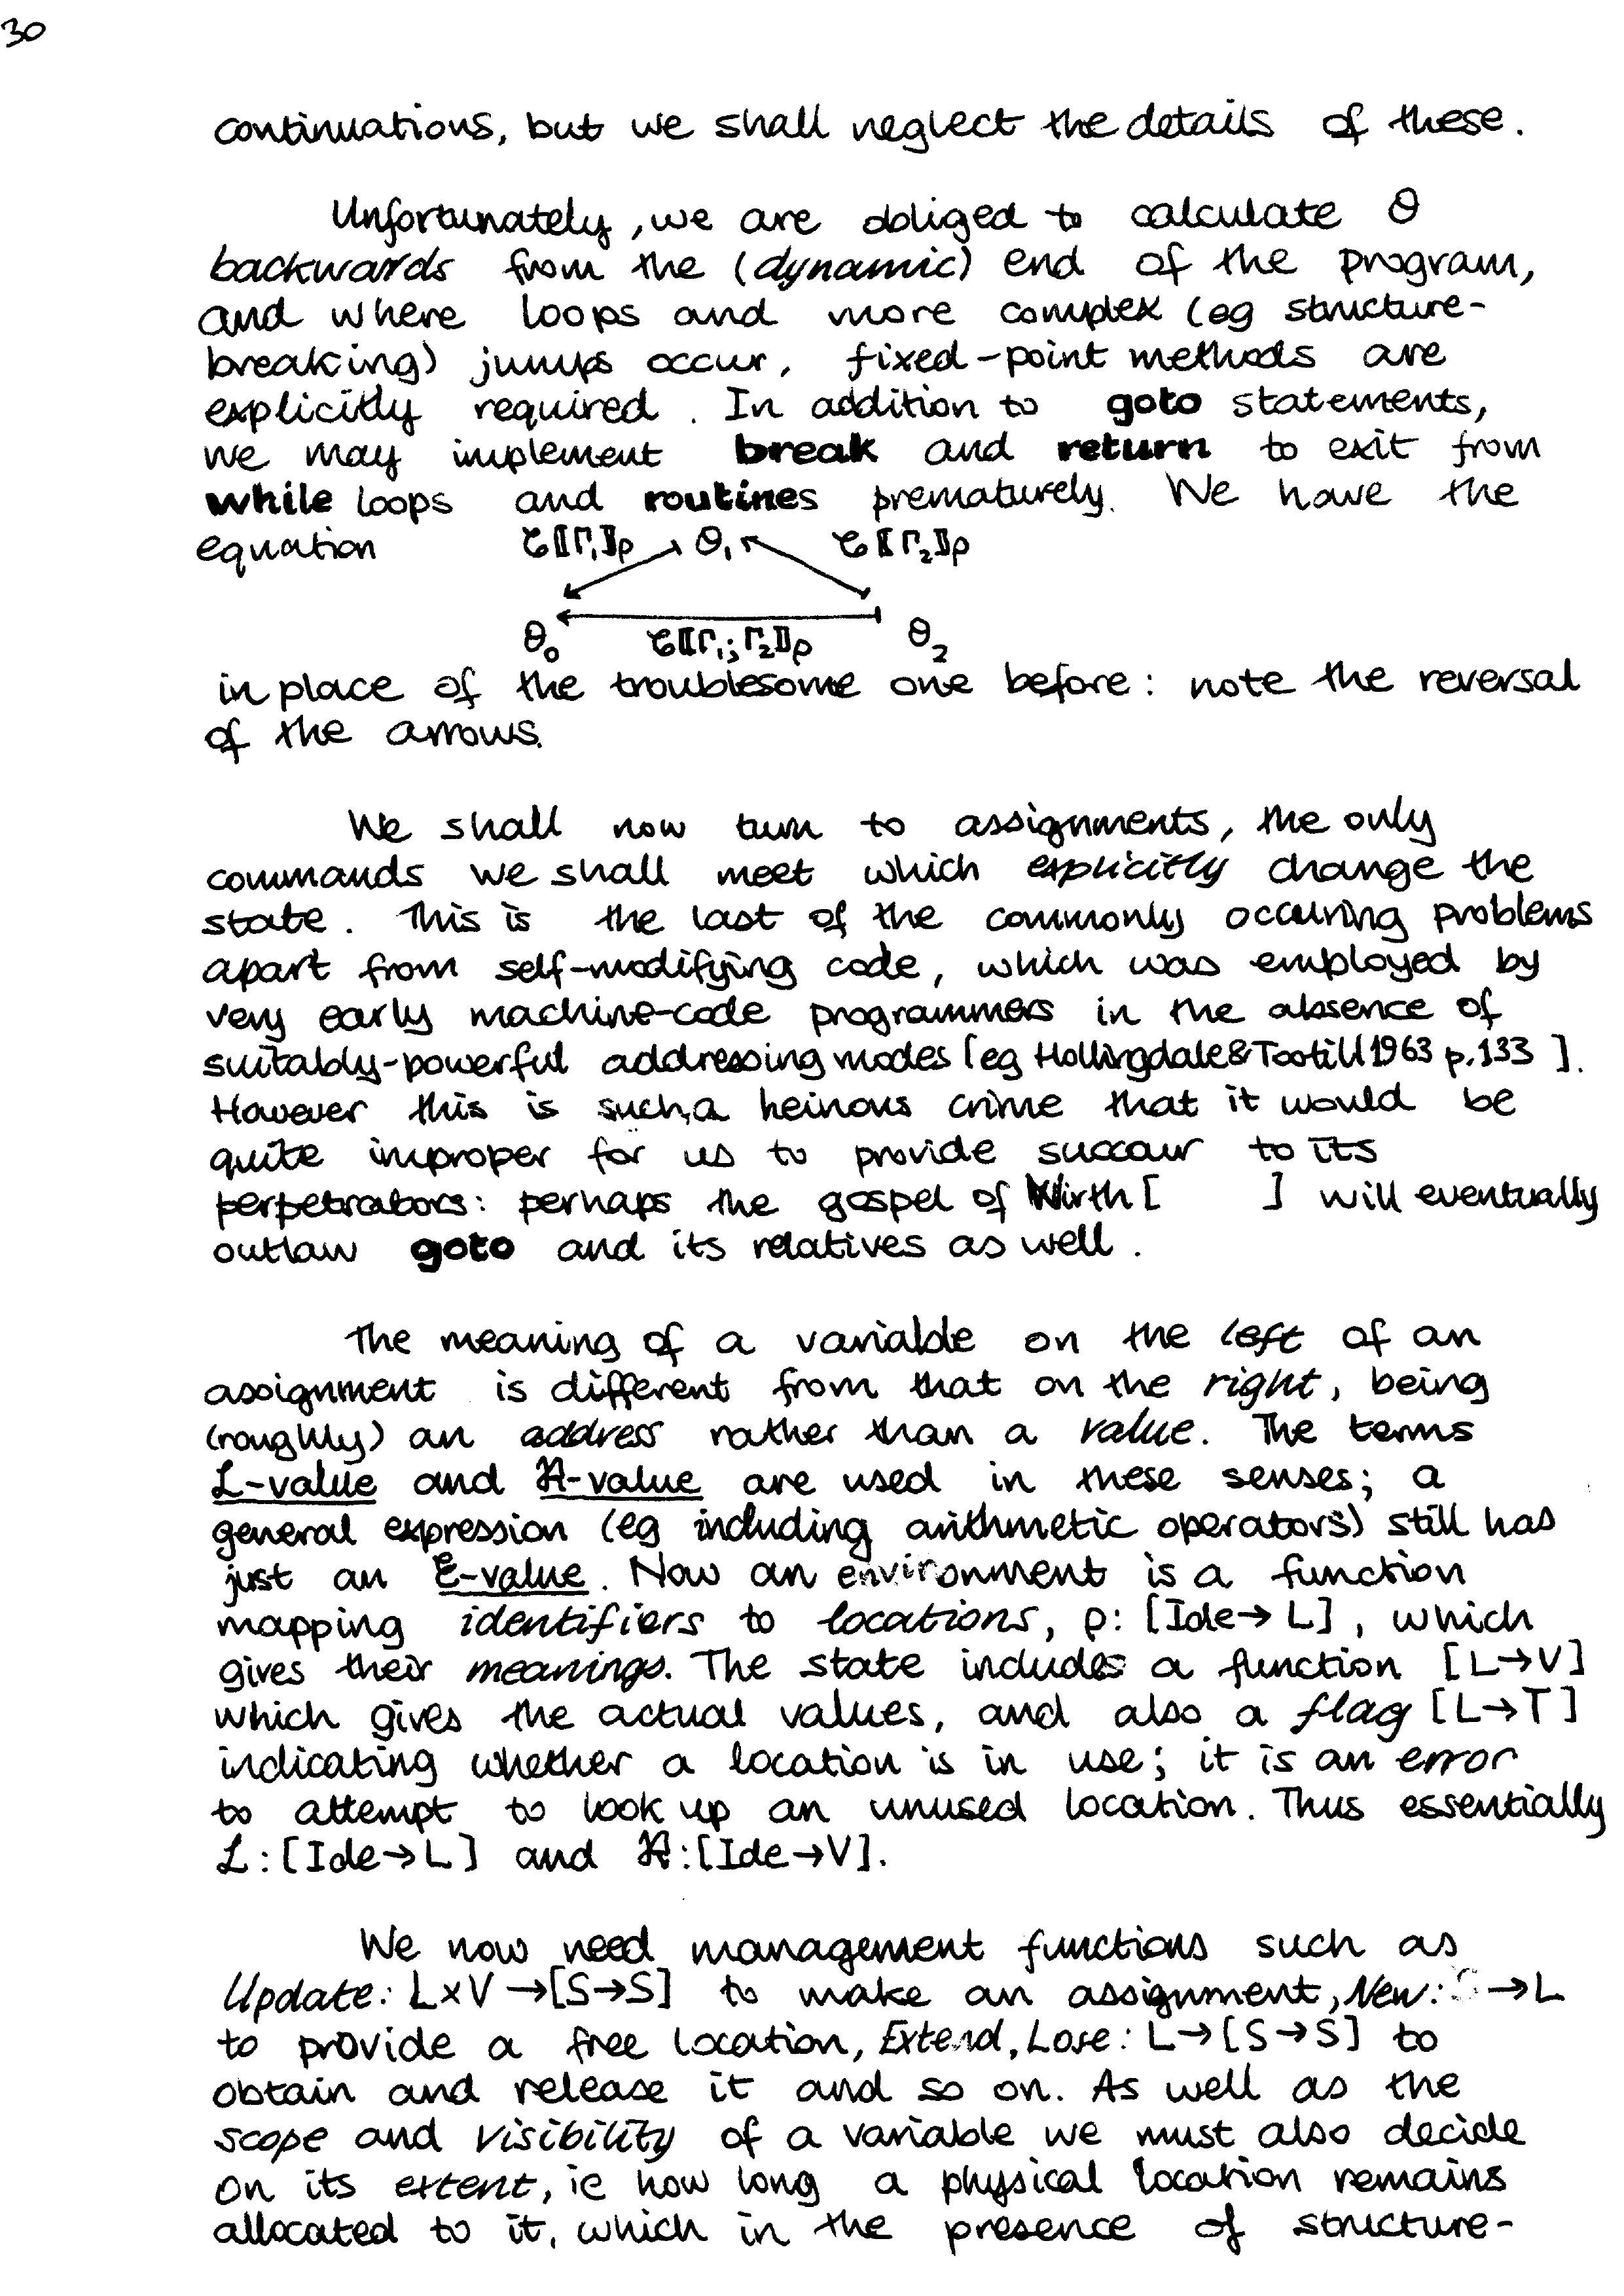 30
continuations, but we shall neglect the details of these.
Unfortunately, we are obliged to calculate θ
backwards from the (dynamic) end of the program,
and where loops and more complex (eg structure-
breaking) jumps occur, fixed-point methods are
explicitly required. In addition to goto statements,
we may implement break and return to exit from
while loops and routines prematurely. We have the
equation 𝒞⟦Γ₁⟧ρ θ₁ 𝒞⟦Γ₂⟧ρ
θ₀ 𝒞⟦Γ₁;Γ₂⟧ρ θ₂
in place of the troublesome one before: note the reversal
of the arrows.
We shall now turn to assignments, the only
commands we shall meet which explicitly change the
state. This is the last of the commonly occuring problems
apart from self-modifying code, which was employed by
very early machine-code programmers in the absence of
suitably-powerful addressing modes [eg Hollingdale&Tootill 1963 p.133 ].
However this is such a heinous crime that it would be
quite improper for us to provide succour to its
perpetrators: perhaps the gospel of Wirth [ ] will eventually
outlaw goto and its relatives as well.
The meaning of a variable on the left of an
assignment is different from that on the right, being
(roughly) an address rather than a value. The terms
ℒ-value and ℛ-value are used in these senses; a
general expression (eg including arithmetic operators) still has
just an ℰ-value. Now an environment is a function
mapping identifiers to locations, ρ: [Ide→L], which
gives their meanings. The state includes a function [L→V]
which gives the actual values, and also a flag [L→T]
indicating whether a location is in use; it is an error
to attempt to look up an unused location. Thus essentially
ℒ:[Ide→L] and ℛ:[Ide→V].
We now need management functions such as
Update: L×V→[S→S] to make an assignment, New: S→L
to provide a free location, Extend, Lose: L→[S→S] to
obtain and release it and so on. As well as the
scope and visibility of a variable we must also decide
on its extent, ie how long a physical location remains
allocated to it, which in the presence of structure-